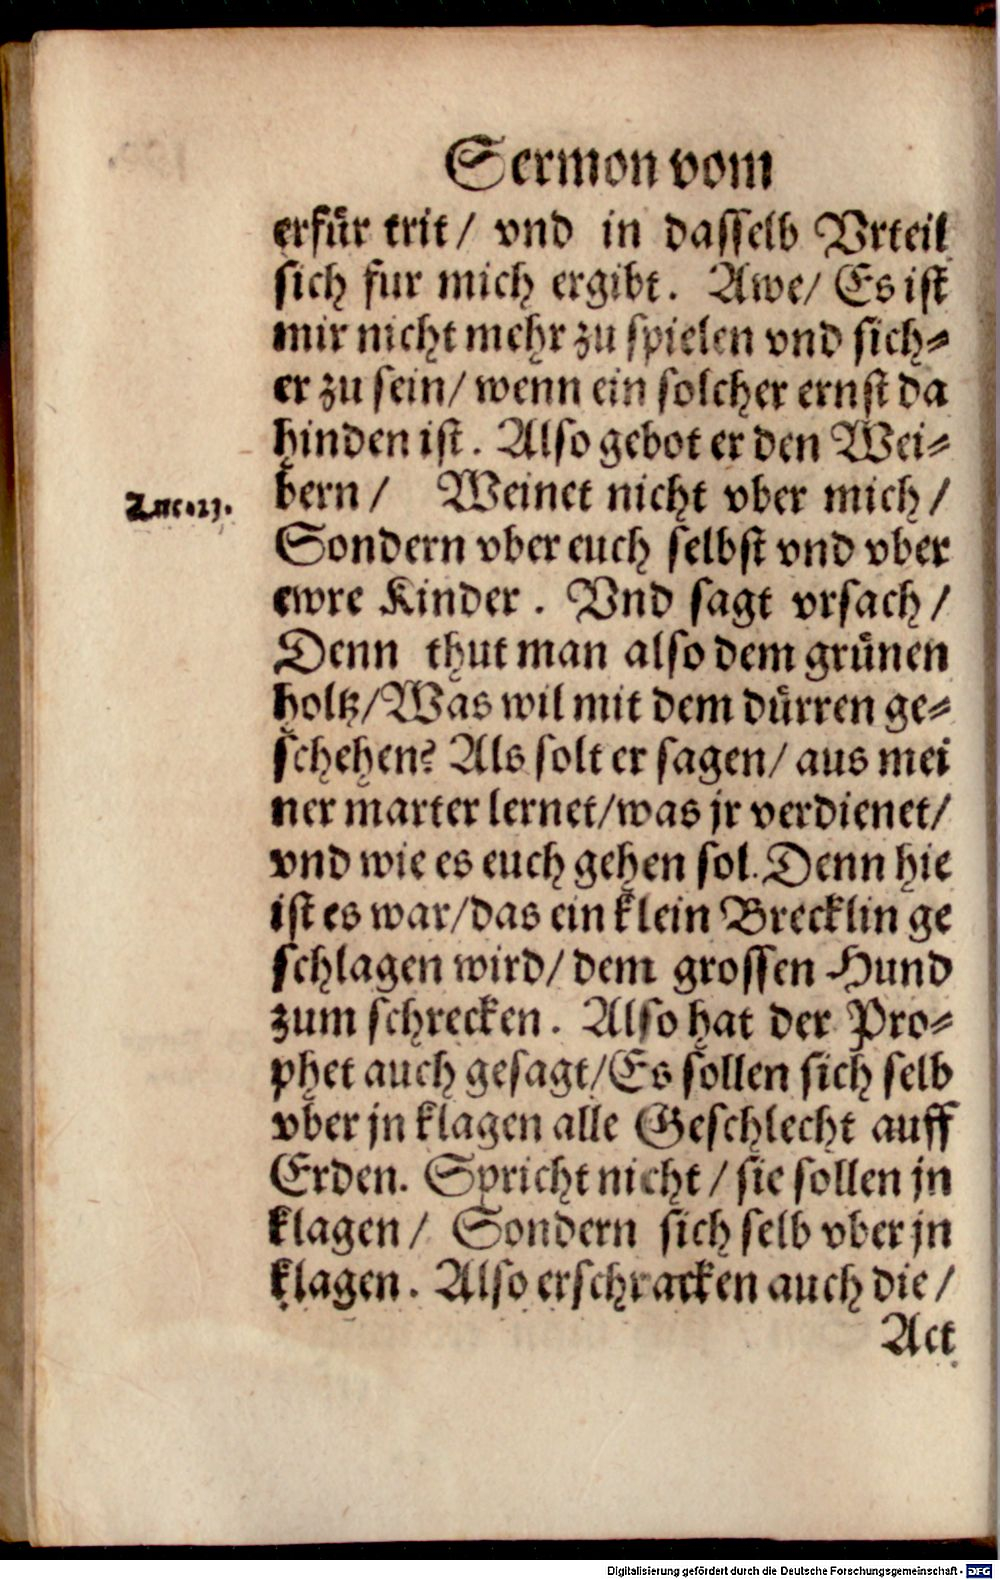 Sermon vom
erfür trit/ vnd in dasselb Vrteil
sich fur mich ergibt. Awe/ Es ist
mir nicht mehr zu spielen vnd sich-
er zu sein/ wenn ein solcher ernst da
hinden ist. Also gebot er den Wei-
Luc. 23.
bern/ Weinet nicht vber mich/
Sondern vber euch selbst vnd vber
ewre Kinder. Vnd sagt vrsach/
Denn thut man also dem grünen
holtz/Was wil mit dem dürren ge-
schehen? Als solt er sagen/ aus mei
ner marter lernet/was jr verdienet/
vnd wie es euch gehen sol. Denn hie
ist es war/das ein klein Brecklin ge
schlagen wird/ dem grossen Hund
zum schrecken. Also hat der Pro-
phet auch gesagt/Es sollen sich selb
vber jn klagen alle Geschlecht auff
Erden. Spricht nicht/ sie sollen jn
klagen/ Sondern sich selb vber jn
klagen. Also erschracken auch die/
Act
Digitalisierung gefördert durch die Deutsche Forschungsgemeinschaft - DFG